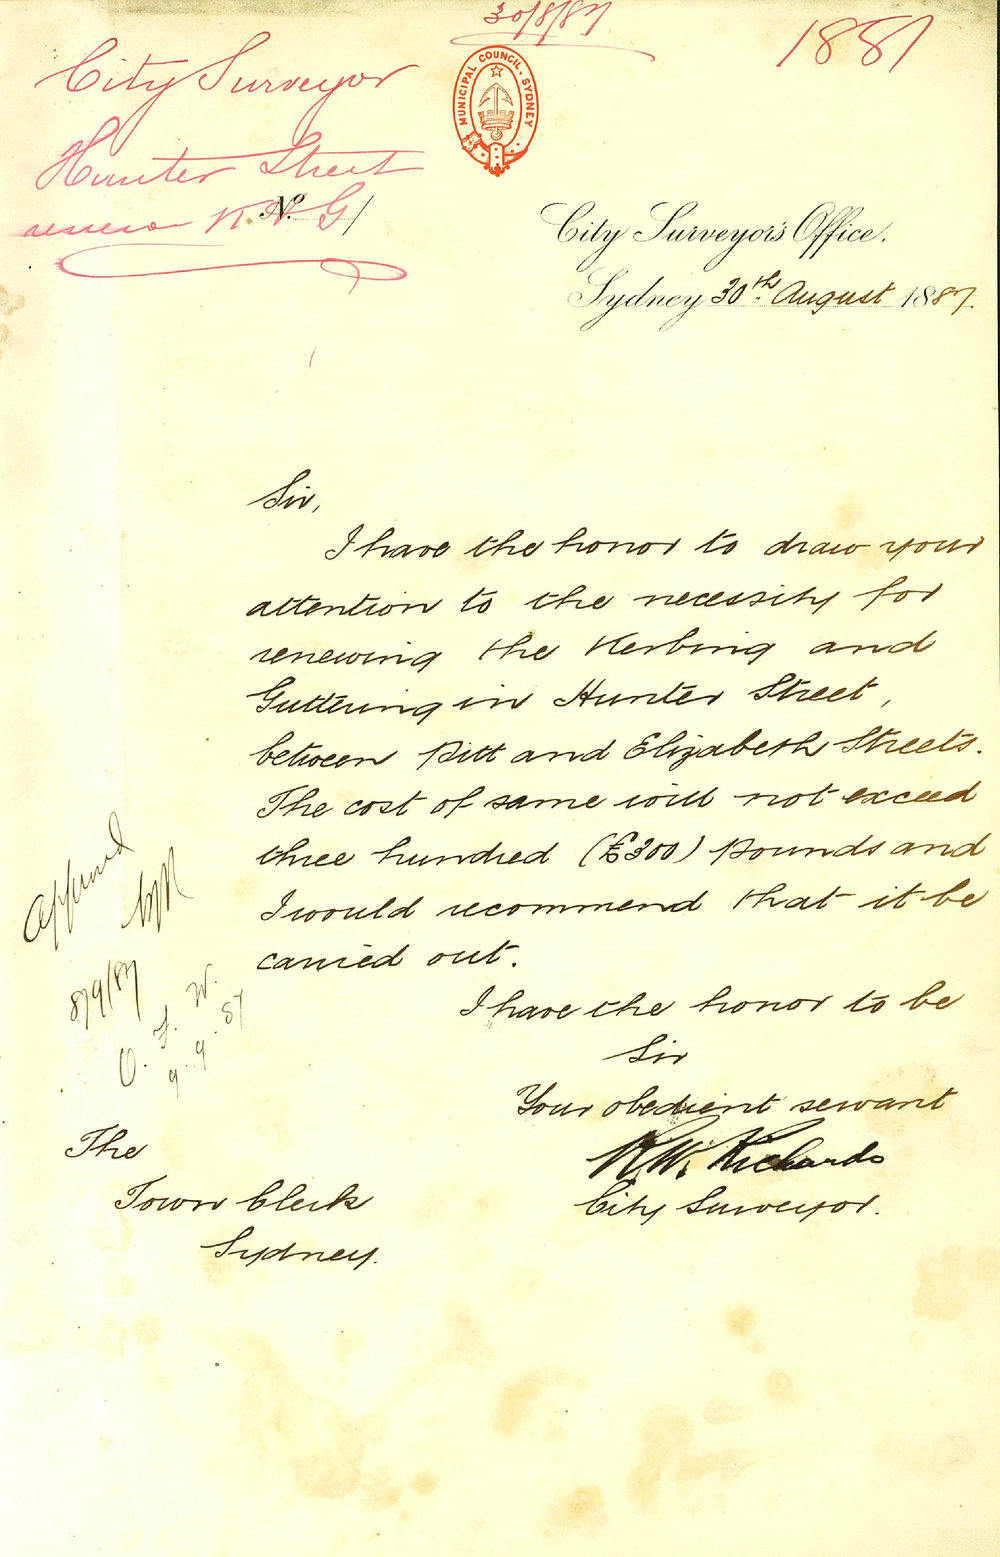 30/8/87
1881
City Surveyor
Hunter Street
renew K & G
No. 1
MUNICIPAL COUNCIL. SYDNEY
City Surveyor's Office.
Sydney 30th August 1887.
Sir,
I have the honor to draw your
attention to the necessity for
renewing the Kerbing and
Guttering in Hunter Street,
between Pitt and Elizabeth Streets.
The cost of same will not exceed
three hundred (£300) Pounds and
I would recommend that it be
carried out.
I have the honor to be
Sir
Your obedient servant
R.W. Richards
City Surveyor.
Approved
8/9/87
9.9.87
The
Town Clerk
Sydney.